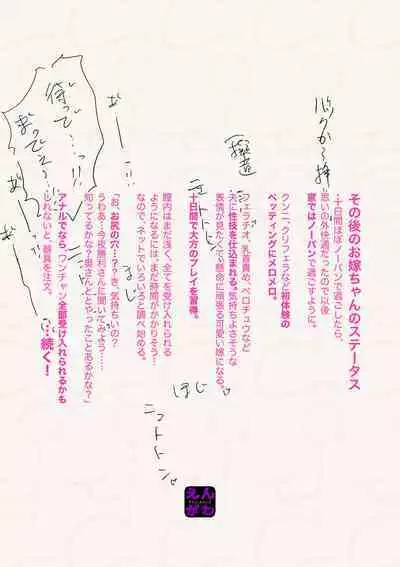 その後のお嫁ちゃんのステータス
…十日間ほぼノーパンで過ごしたら、
思いの外快適だったので以後
家ではノーパンで過ごすように。
クンニ、クリフェラなど初体験の
ペッティングにメロメロ。
フェラチオ、乳首責め、ベロチュウなど
夫に性技を仕込まれる。気持ちよさそうな
表情が見たくて、懸命に頑張る可愛い嫁になる。
十日間で大方のプレイを習得。
膣内はまだ浅く、全てを受け入れられる
ようになるには、まだ時間がかかりそう…
なので、ネットでいろいろと調べ始める。
「お、お尻の穴…??き、気持ちいの?
うわあ…今夜勝利さんに聞いてみよう……
知ってるかな?奥さんとやったことあるかな?」
アナルでなら、ワンチャン全部受け入れられるかも
しれないと、器具を注文。
…続く!
待って…
ほじ
えん
がわ